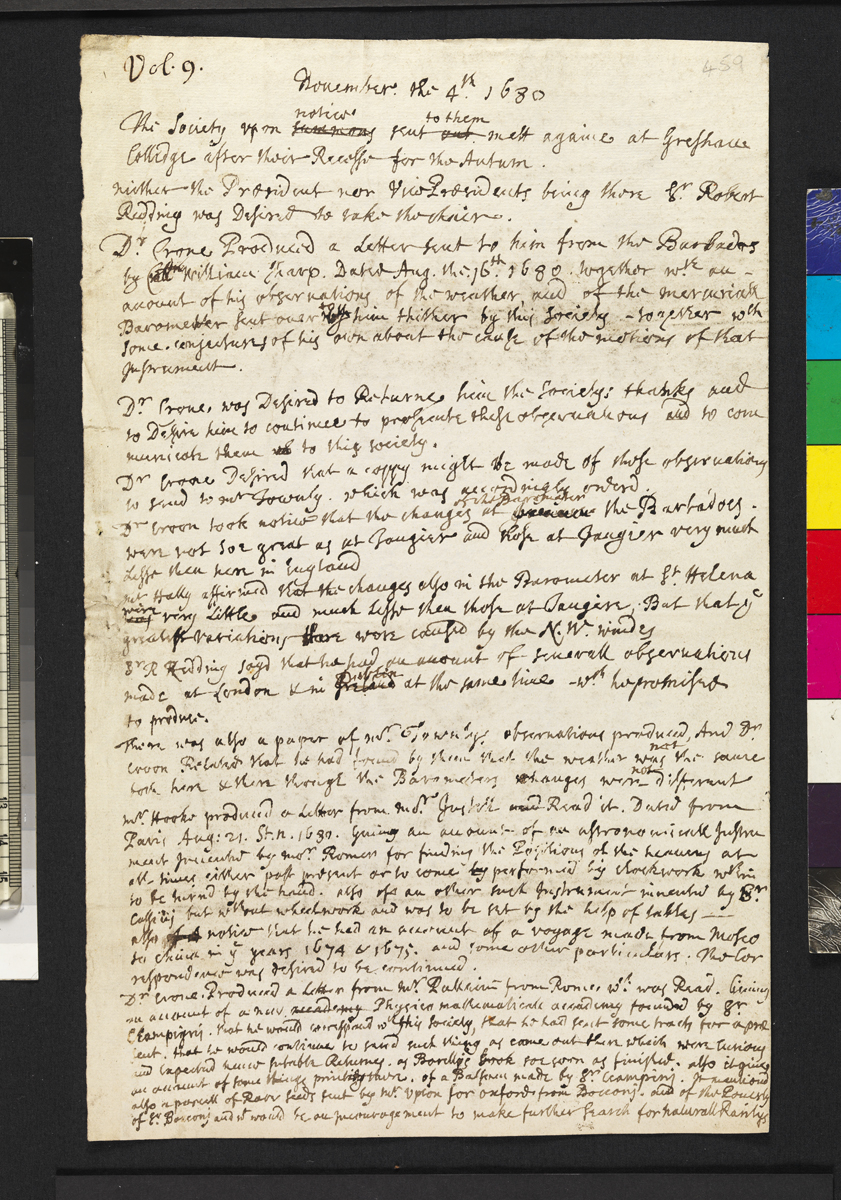 Vol. 9.
459
November. the 4th. 1680
notice to them
The Society upon summons sent out mett againe at Gresham
Colledge after their Recesse for the Autum.
neither the Præsident nor Vice Præsidents being there Sr. Robert
Redding was Desired to take the chaire.
Dr. Crone Produced a Letter sent to him from the Barbados
by William Sharp. Dated Aug. the 16th. 1680. together wth an
account of his observations of the weather, and of the mercuriall
Barometer sent over to him thither by this Society - together wth
some conjectures of his own about the cause of the motions of that
Instrument.
Dr. Crone, was Desired to Returne him the Societys thanks and
to Desire him to continue to prosecute these observations and to com
municate them to this society.
Dr Crone Desired that a coppy might be made of those observations
to send to mr Townly. which was accordingly orderd.
of the Barometer
Dr Croon took notice that the changes at the Barbados.
were not soe great as at Tangier and those at Tangier very much
Lesse then here in England
mr Hally affirmed that the changes also in the Barometer at St. Helena
were
was very Little and much Lesse then those at Tangire, But that ye
greatest variations there were caused by the N. W. windes
Sr R Redding sayd that he had an account of severall observations
Dublin
made at London & in Ireland at the same time - wch he promised
to produce.
There was also a paper of mr. Townlys observations produced, And Dr.
not
Croon Related that he had found by them that the weather was the same
not
both here & there though the Barometers changes were different
mr. Hooke produced a Letter from mr. Justell and Read it. Dated from
Paris Aug: 21. St. n. 1680. Giving an account of an astronomicall Instru
ment Invented by mor. Romer for finding the Positions of the heavens at
all times either past present or to come by performed by clockwork
to be turnd by the hand. also of an other such Instrument invented by Sr.
Cassini but wthout wheelwork and was to be set by the help of tables
also notice that he had an account of a voyage made from Mosco
to China in ye years 1674 & 1675. and some other particulars. The Cor
respondence was desired to be continued.
Dr Crone. Produced a Letter from mr. from Rome wch. was Read. Giving
an account of a new academy Physico mathematicall accademy founded by Sr.
Ciampini. that he would correspond wth this Society, that he had sent some tracts for a pre
sent. that he would continue to send such things as came out there which were curious
and Expected hence sutable Returnes. as Borellys book soe soon as finished. also it gives
an account of some things printing there. of a Balsam made by Sr. Ciampini. It mentiond
also a parcell of Rare seeds sent by mr. Upton for oxford from Boccony. and of the Poverty
of Sr. Boccony and wt would be an encouragement to make further search for naturall Raritys